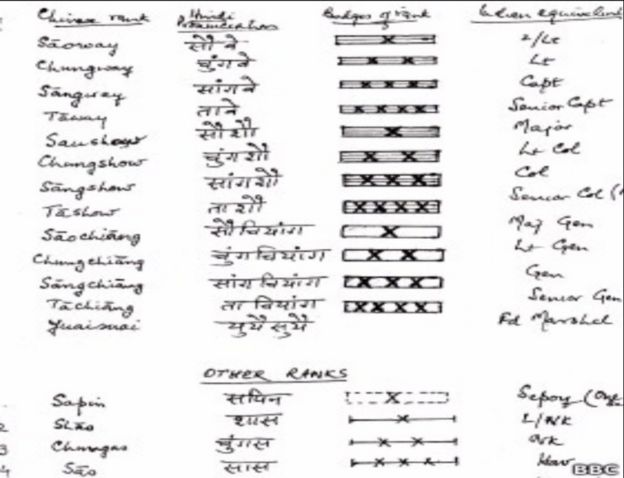 Chinese rank Hindi Pronunciation Badges of rank Indian equivalent
Sāoway सौ वे 2/Lt
Chungway चुंगवे Lt
Sāngway सांगवे Capt
Tāway तावे Senior Capt
Saushow सौ शौ Major
Chungshow चुंग शौ Lt Col
Sāngshow सांग शौ Col
Tāshow ता शौ Senior Col
Sāochiāng सौ चियांग Maj Gen
Chungchiāng चुंग चियांग Lt Gen
Sāngchiāng सांग चियांग Gen
Tāchiāng ता चियांग Senior Gen
Yuaisuai युऐ सुऐ Fd Marshal
OTHER RANKS
Sapin सपिन Sepoy
2 Shāo शास L/NK
3 Chungas चुंगस NK
4 Sāo सास Hav
BBC